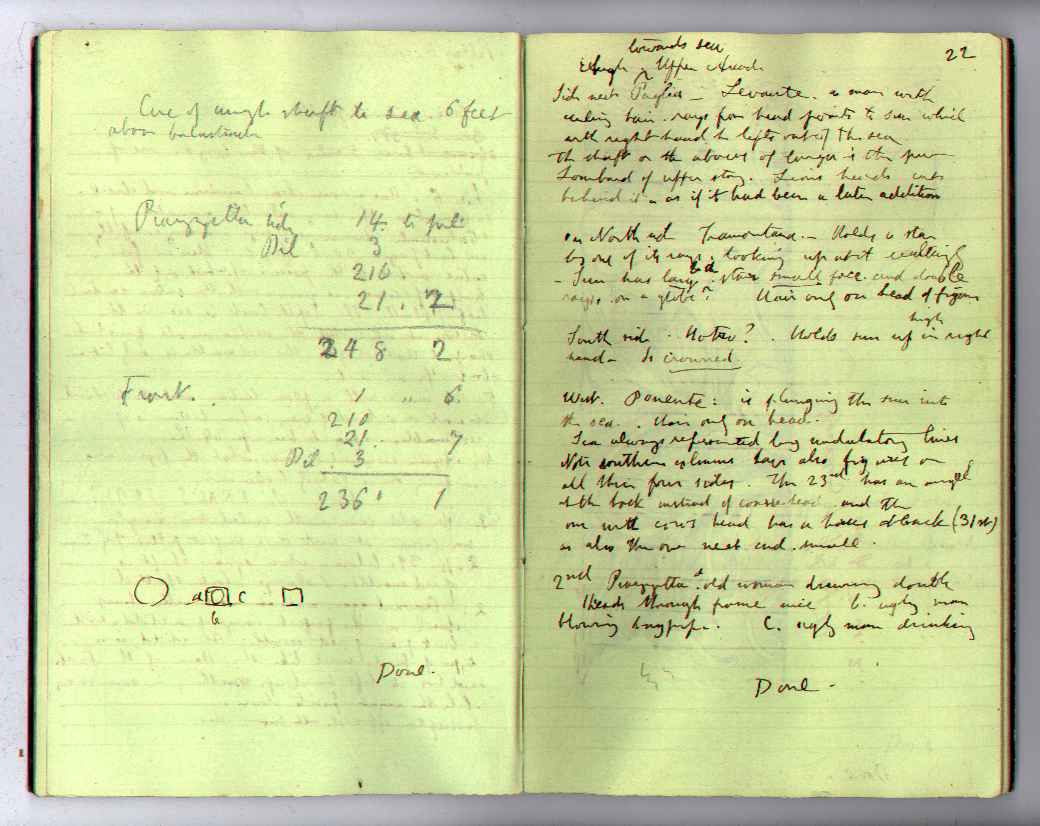 of angle shaft to sea. 6 feet
above balustrade
Piazzetta side 14. to pil
Pil 3
210
21. 7
248 2
Front. 1 " 6.
210
21. 7
Pil. 3
236' 1
a c
b
Done.
22
towards sea
Angle of Upper Arcade
Side next Puglia - Levante. a man with
curling hair. rays from head points to sun which
with right hand he lifts out of the sea
The shaft on the above of longer is the pure
Lombard of upper story. Lions heads cuts
behind it as if it had been a later addition
on North side Tramontana. - Holds a star
by one of its rays, looking up at it exultingly
- Sun has large star small face and double
rays. on a globe? Hair only on head of figure
high
South side. Hotro? . Holds sun up in right
hand - Is crowned
West. Ponente: is plunging the sun into
the sea. Hair only on head.
Sea always represented long undulatory lines
Note southern columns says also figures on
all their four sides. The 23rd has an angel
at the back instead of head. and the
one with cows head has a at back (31st)
as also the one next end. small.
2nd Piazzetta. a old woman drawing double
thread through b. ugly man
blowing bagpipe. C. ugly man drinking
Done -